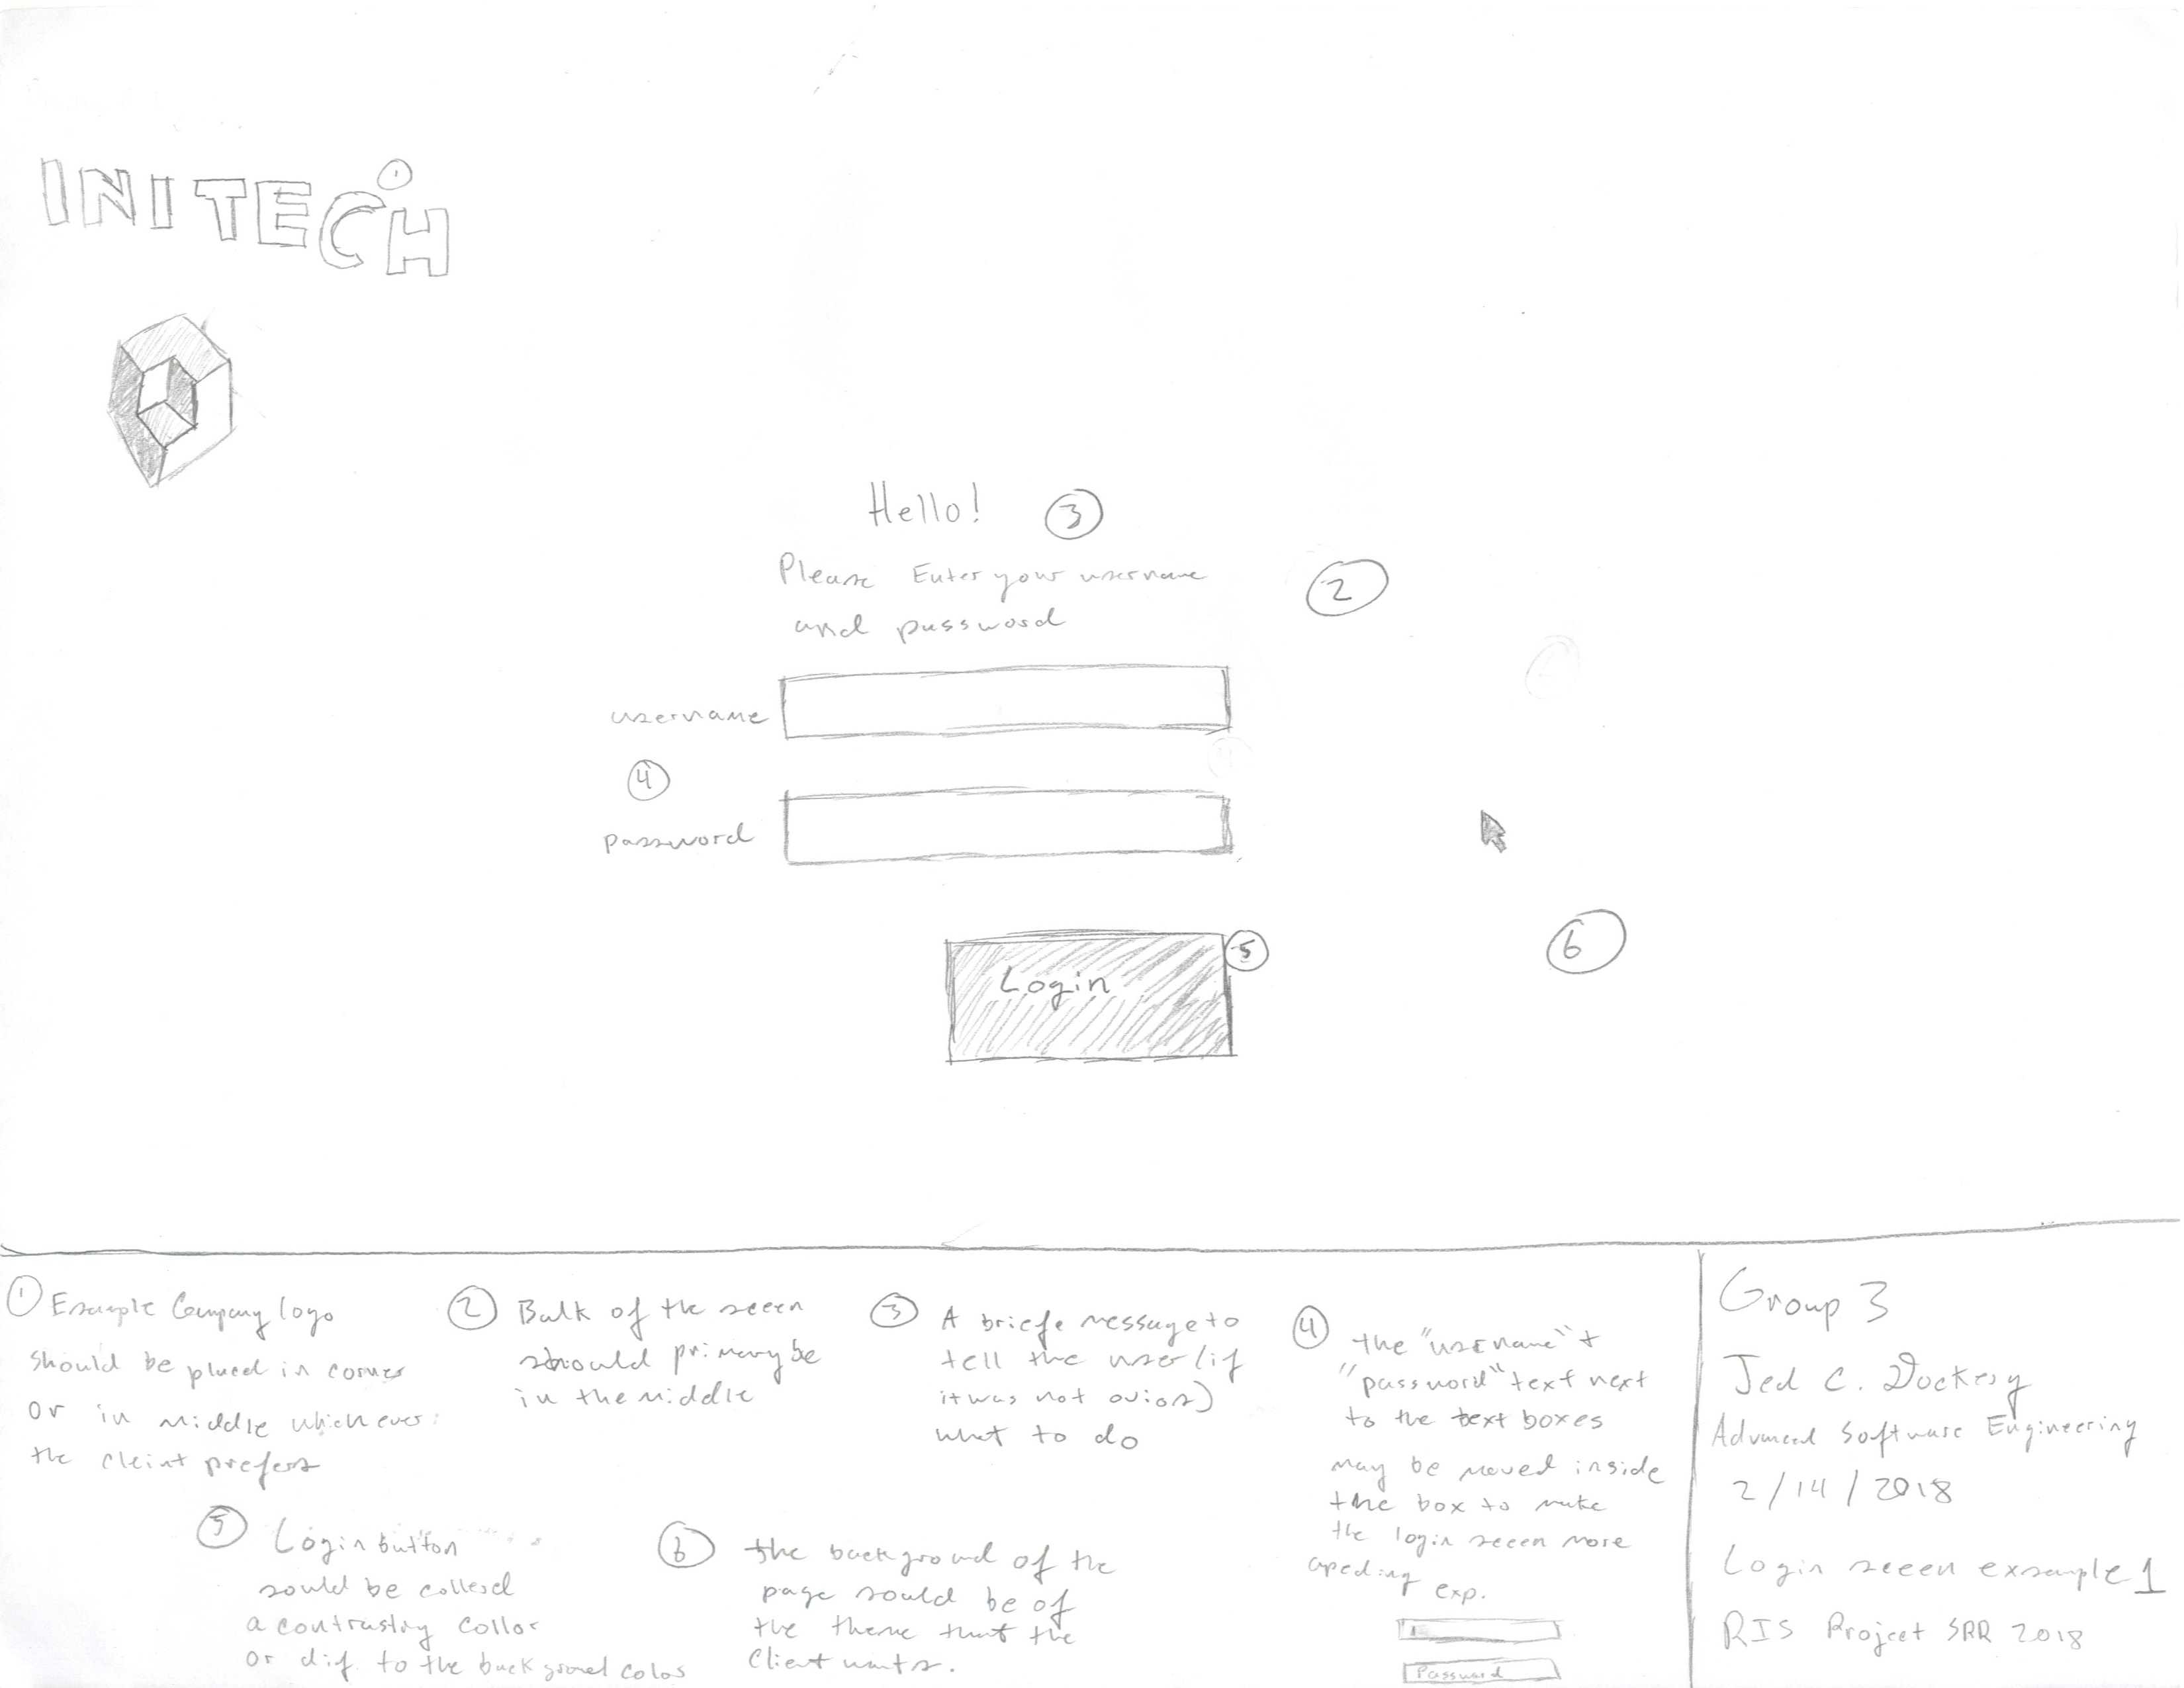 INITECH
1
Hello! 3
Please Enter your username
and password
2
username
4
password
Login
5
6
1 Example Company logo
should be placed in corner
or in middle whichever
the cleint prefers
2 Bulk of the sceen
should primary be
in the middle
3 A briefe message to
tell the user (if
it was not ovios)
what to do
4 the "username" +
"password" text next
to the text boxes
may be moved inside
the box to make
the login sceen more
apeding exp.
Password
5 Login button
sould be collered
a contrasting collor
or dif. to the background color
6 the background of the
page sould be of
the theme that the
Client wants.
Group 3
Jed C.
Advanced Software Engineering
2/14/2018
Login sceen exsample 1
RIS Project SRR 2018